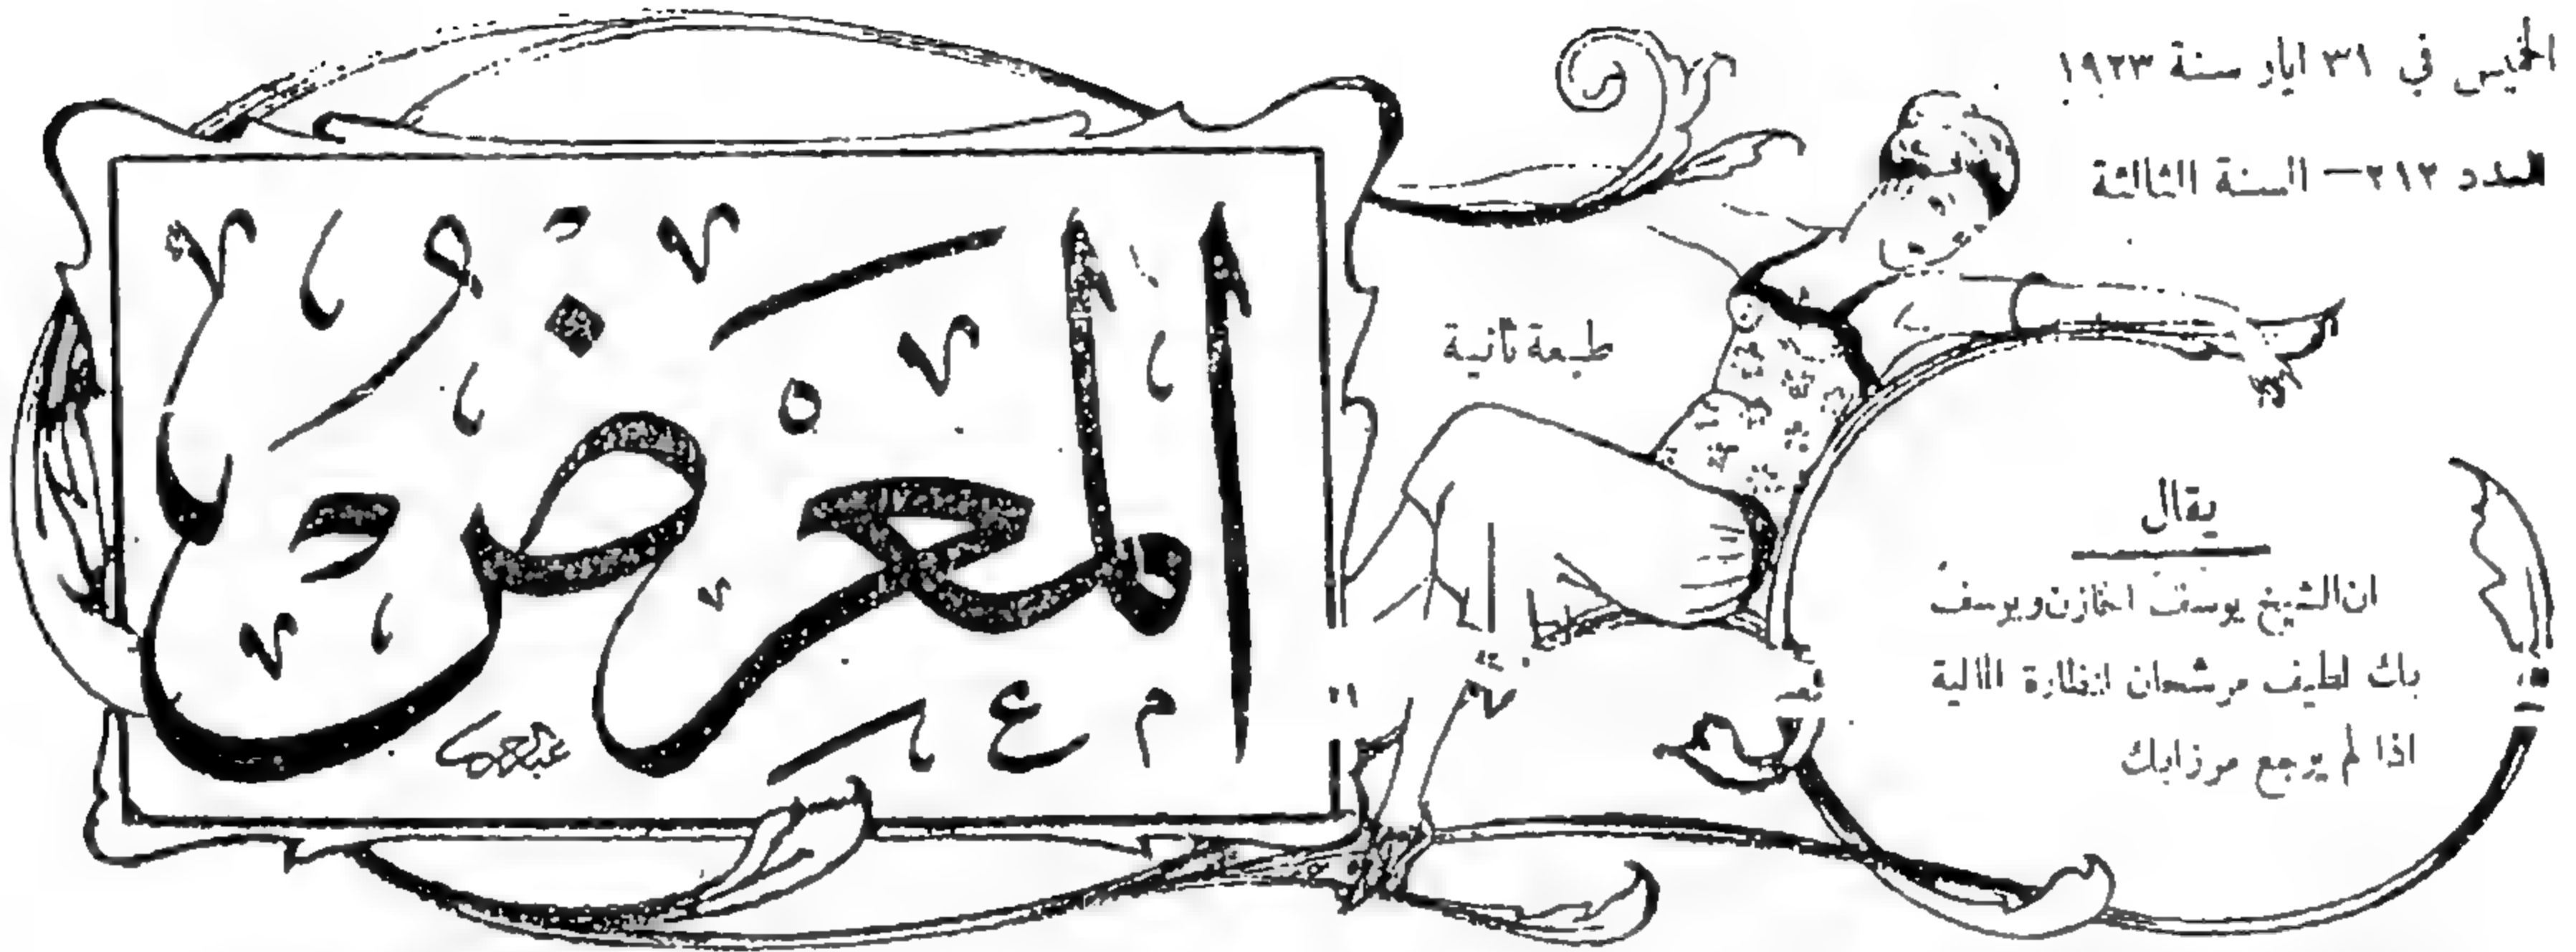 الخميس في ٣١ ايار سنة ١٩٢٣
العدد ٢١٢ — السنة الثالثة
طبعة ثانية
المعرض
يقال
ان الشيخ يوسف الخازن ويوسف
بك لطيف مرشحان لنظارة المالية
اذا لم يرجع مرزابك